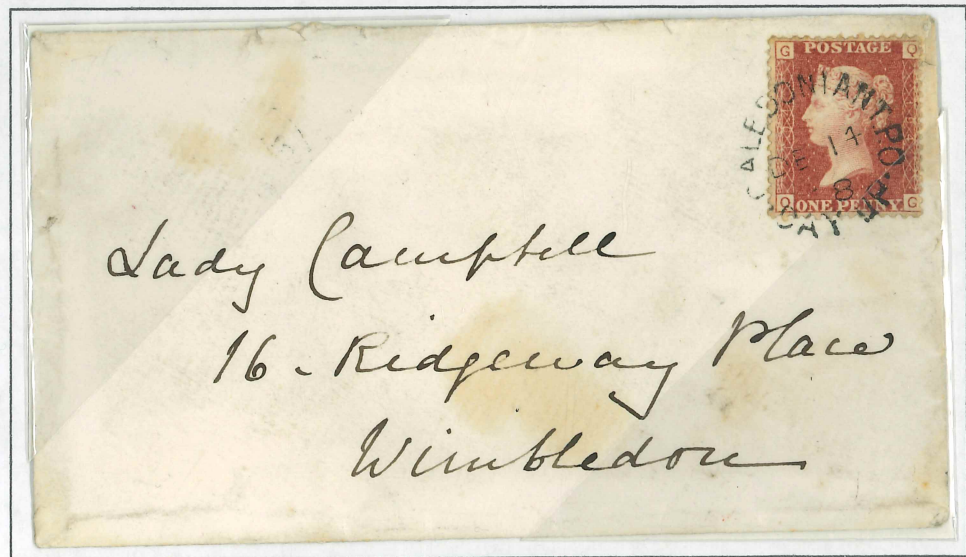 G POSTAGE Q
CALEDONIAN T.P.O.
DE 14
8
DAY UP
Q ONE PENNY G
Lady Campbell
16 - Ridgeway Place
Wimbledon